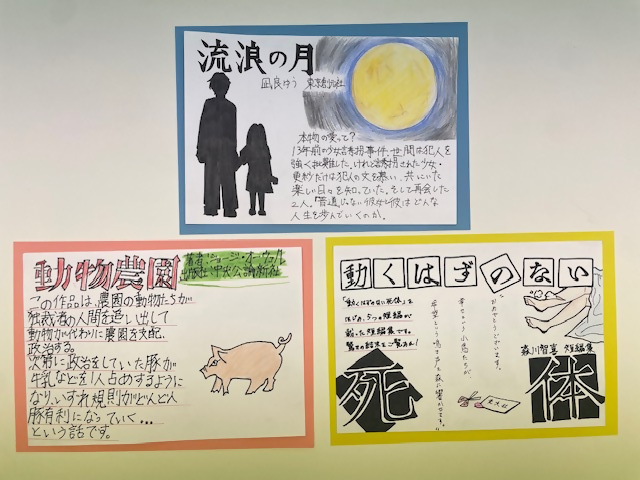 流浪の月
凪良ゆう 東京創元社
本物の愛って?
13年前の少女誘拐事件、世間は犯人を
強く批難した。けれど誘拐された少女・
更紗だけは犯人の文を慕い、共にいた
楽しい日々を知っていた。そして再会した
2人。「普通」じゃない彼女と彼はどんな
人生を歩んでいくのか。
動物農園
著者:ジョージ・オーウェル
出版社:中央公論新社
この作品は、農園の動物たちが
独裁者の人間を追い出して
動物が代わりに農園を支配、
政治する。
次第に政治をしていた豚が
牛乳などを1人占めするように
なり、いずれ規則がどんどん
豚有利になっていく...
という話です。
動くはずのない
死体
森川智喜 短編集
「動くはずのない死体」を
はじめ、5つの短編が
載った短編集です。
驚きの結末をご覧あれ!